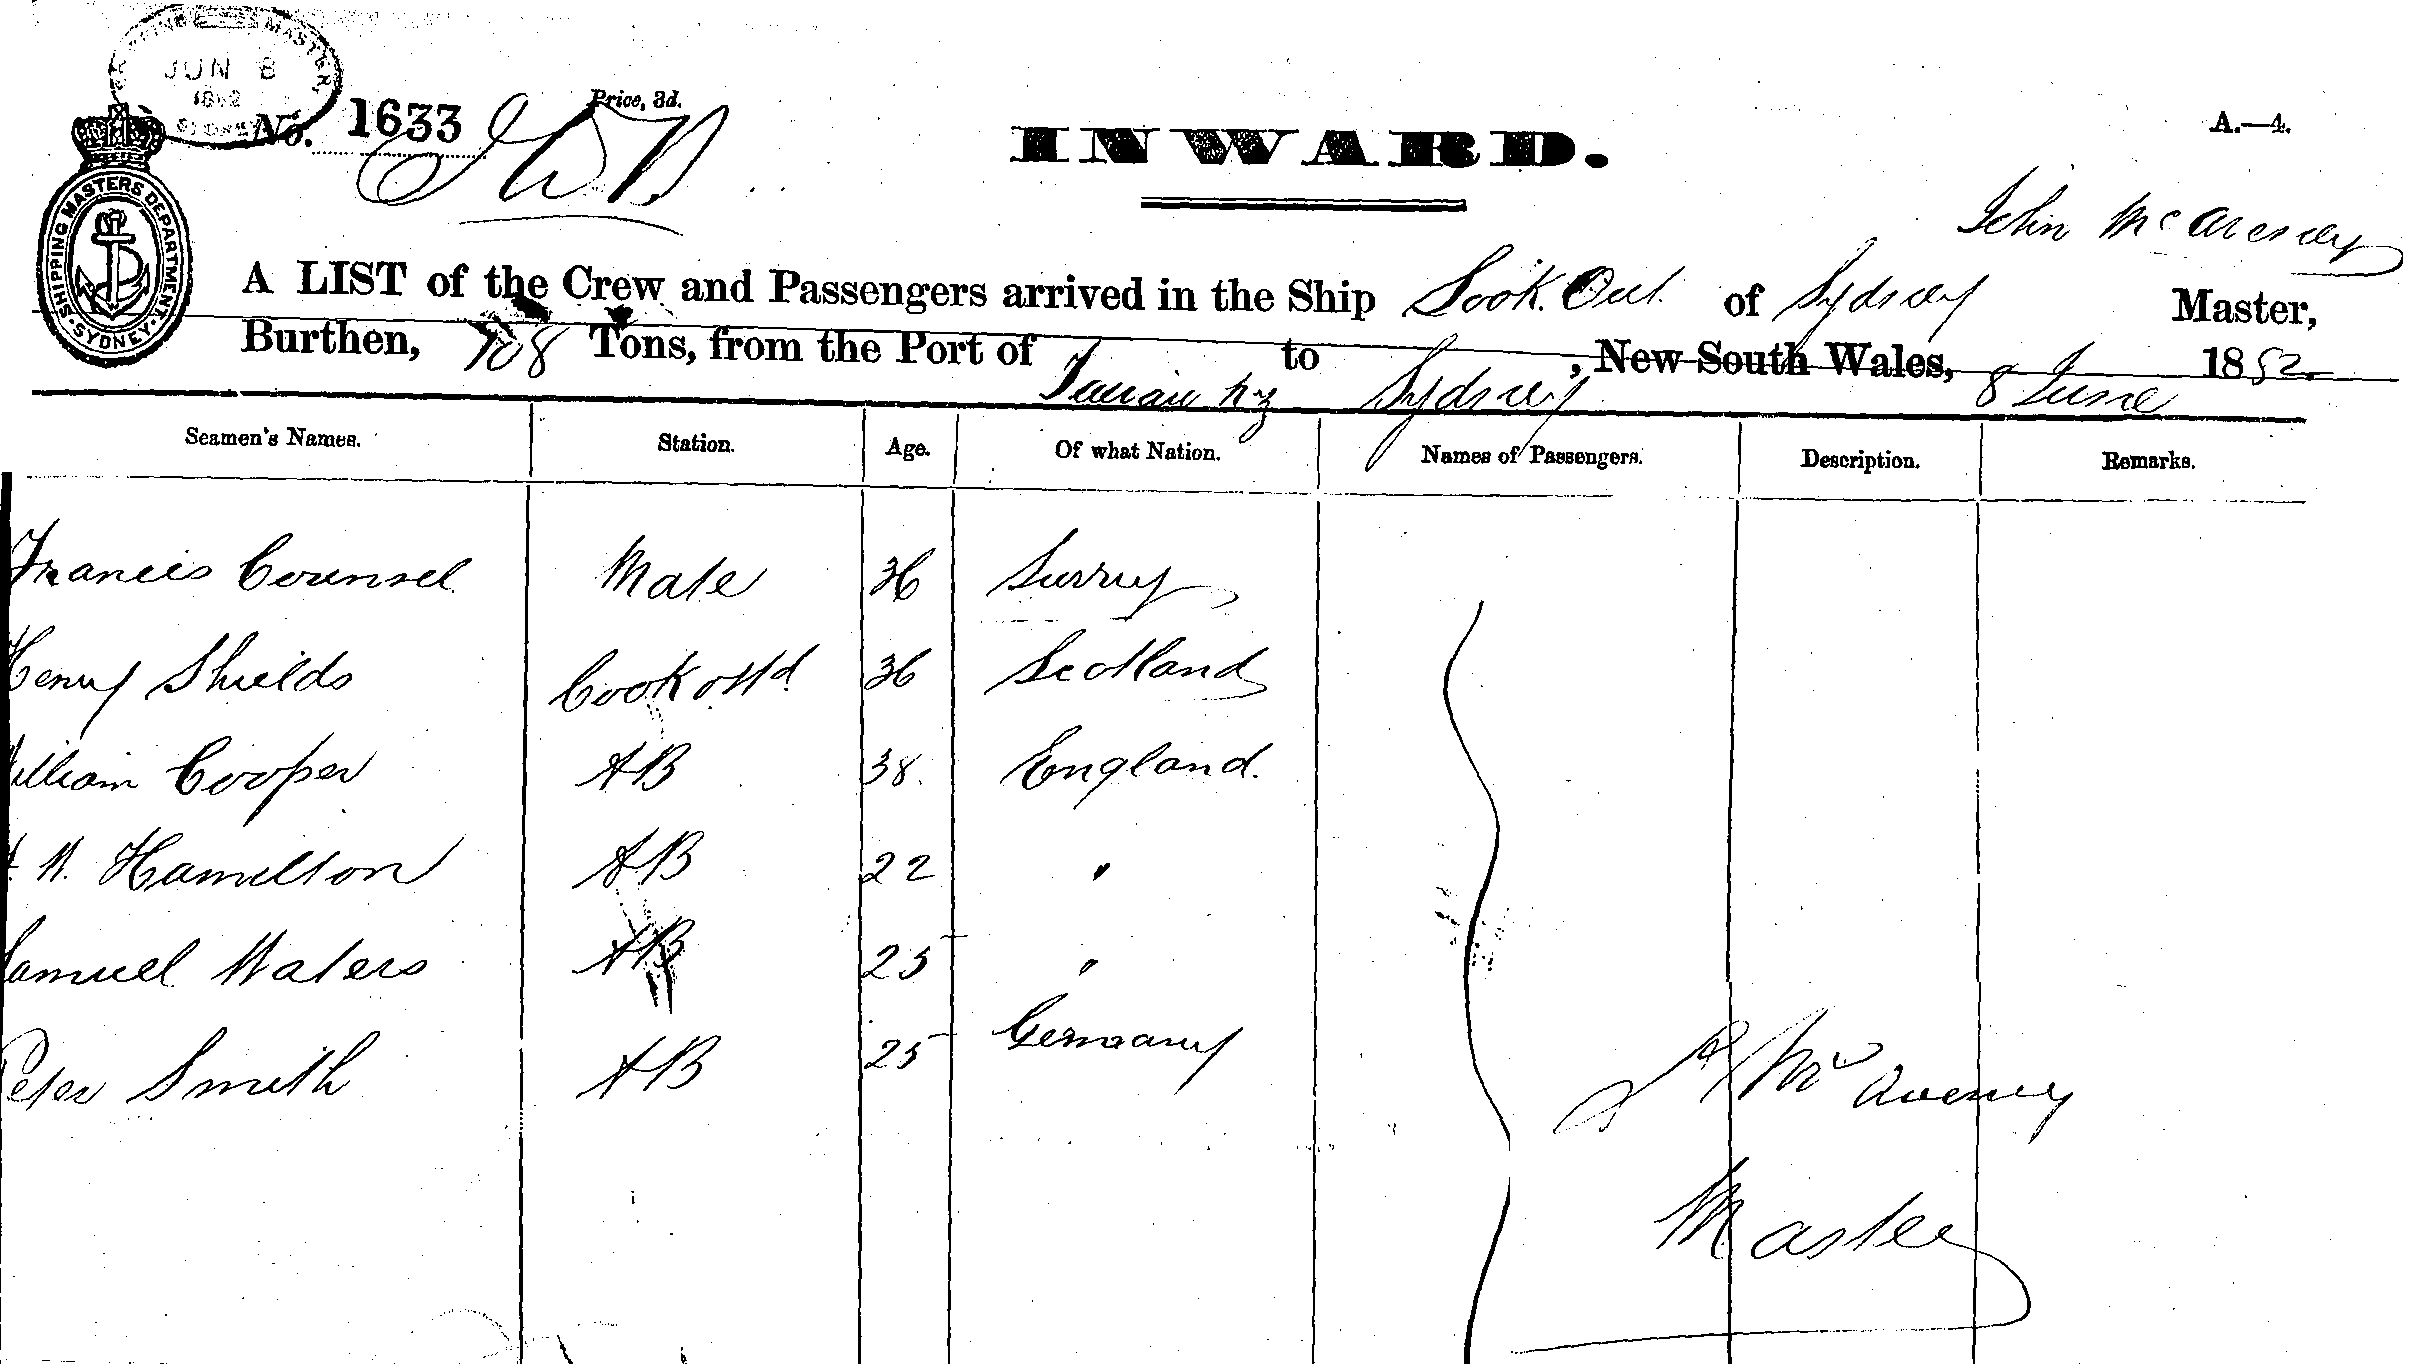 JUN 8
No. 1633
Price, 3d.
INWARD.
A.—4.
SHIPPING MASTERS DEPARTMENT SYDNEY
John Mc
A LIST of the Crew and Passengers arrived in the Ship Look Out of Sydney Master,
Burthen, Tons, from the Port of to Sydney, New South Wales, 8 June 1882
Seamen's Names. Station. Age. Of what Nation. Names of Passengers. Description. Remarks.
Francis Counsel Mate 36 Surrey
Henry Shields Cook & Std 36 Scotland
William Cooper AB 38. England.
Hamilton AB 22 "
Samuel Waters AB 25 "
Peter Smith AB 25 Germany
Mc Aveney
Master